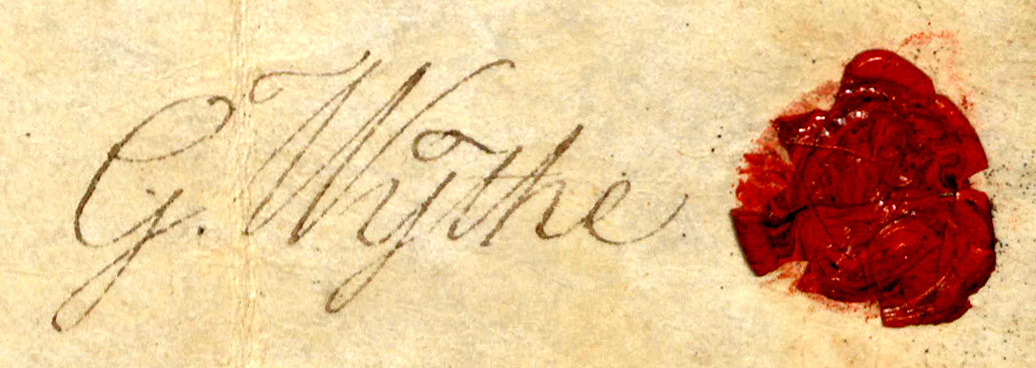 G. Wythe